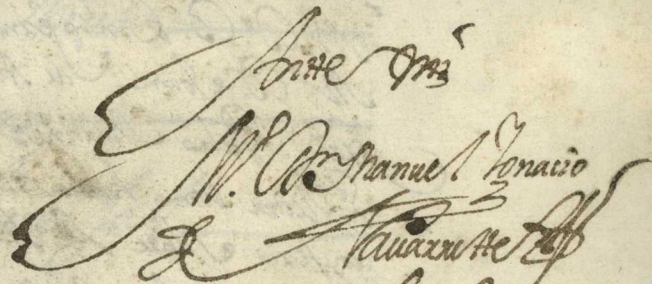 Antte Mi
M.º D.n Manuel Ignacio
Nauarrette